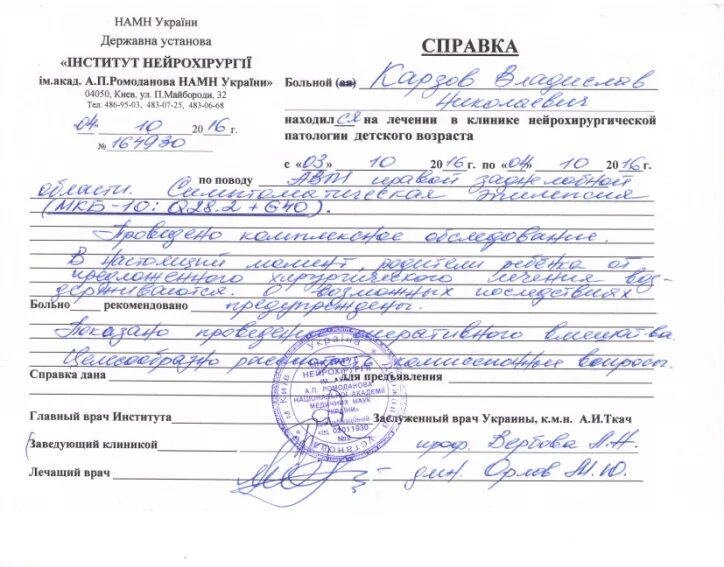 НАМН України
Державна установа
«ІНСТИТУТ НЕЙРОХІРУРГІЇ
ім.акад. А.П.Ромоданова НАМН України»
04050, Киев, ул. П.Майбороди, 32
Тел. 486-95-03, 483-07-25, 483-06-68
04. 10 2016 г.
№ 164930
СПРАВКА
Больной (ая) Карзов Владислав
Николаевич
находилСЯ на лечении в клинике нейрохирургической
патологии детского возраста
с «03» 10 2016 г. по «04» 10 2016 г.
по поводу АВМ правой заднелобной
области. Симптоматическая эпилепсия
(МКБ-10: Q28.2 + G40).
Проведено комплексное обследование.
В настоящий момент родители ребёнка от
предложенного хирургического лечения воз-
держиваются. О возможных последствиях
Больно рекомендовано предупреждены.
Показано проведение оперативного вмешат-ва.
Целесообразно комиссионные вопросы.
Справка дана для предъявления
Главный врач Института Заслуженный врач Украины, к.м.н. А.И.Ткач
Заведующий клиникой проф. Вербова Л.Н.
Лечащий врач дмн. Орлов М.Ю.
Україна
м.Київ
ІНСТИТУТ
НЕЙРОХІРУРГІЇ
ІМ.
А.П. РОМОДАНОВА
НАЦІОНАЛЬНОЇ АКАДЕМІЇ
МЕДИЧНИХ НАУК
УКРАЇНИ»
02011930
№2